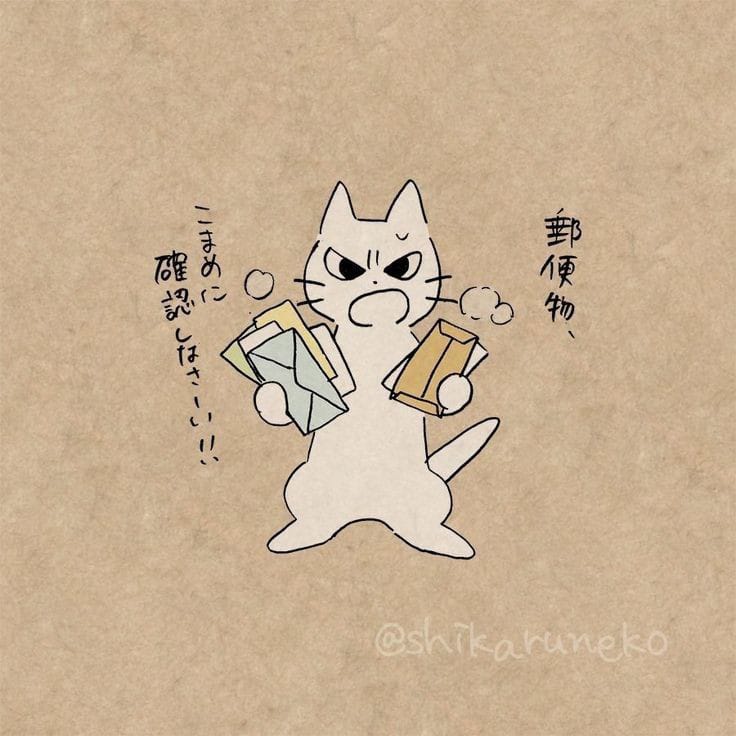 郵便物、
こまめに
確認しなさーい!!
@shikaruneko